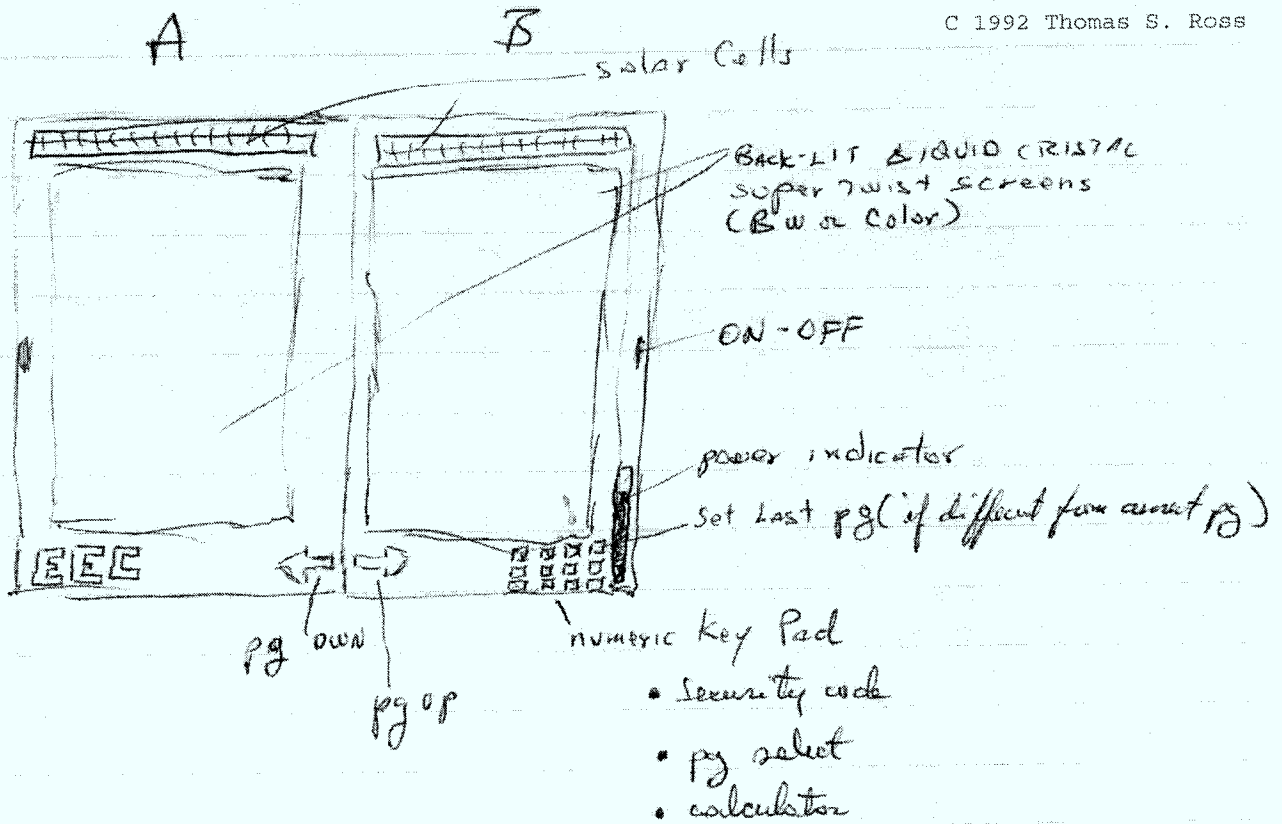 C 1992 Thomas S. Ross
A
B
solar Cells
BACK-LIT LIQUID CRISTAL
super Twist screens
(B W or Color)
ON-OFF
power indicator
Set Last pg (if different from current pg)
EEC
pg DWN
pg up
numeric Key Pad
• Security code
• pg select
• calculator